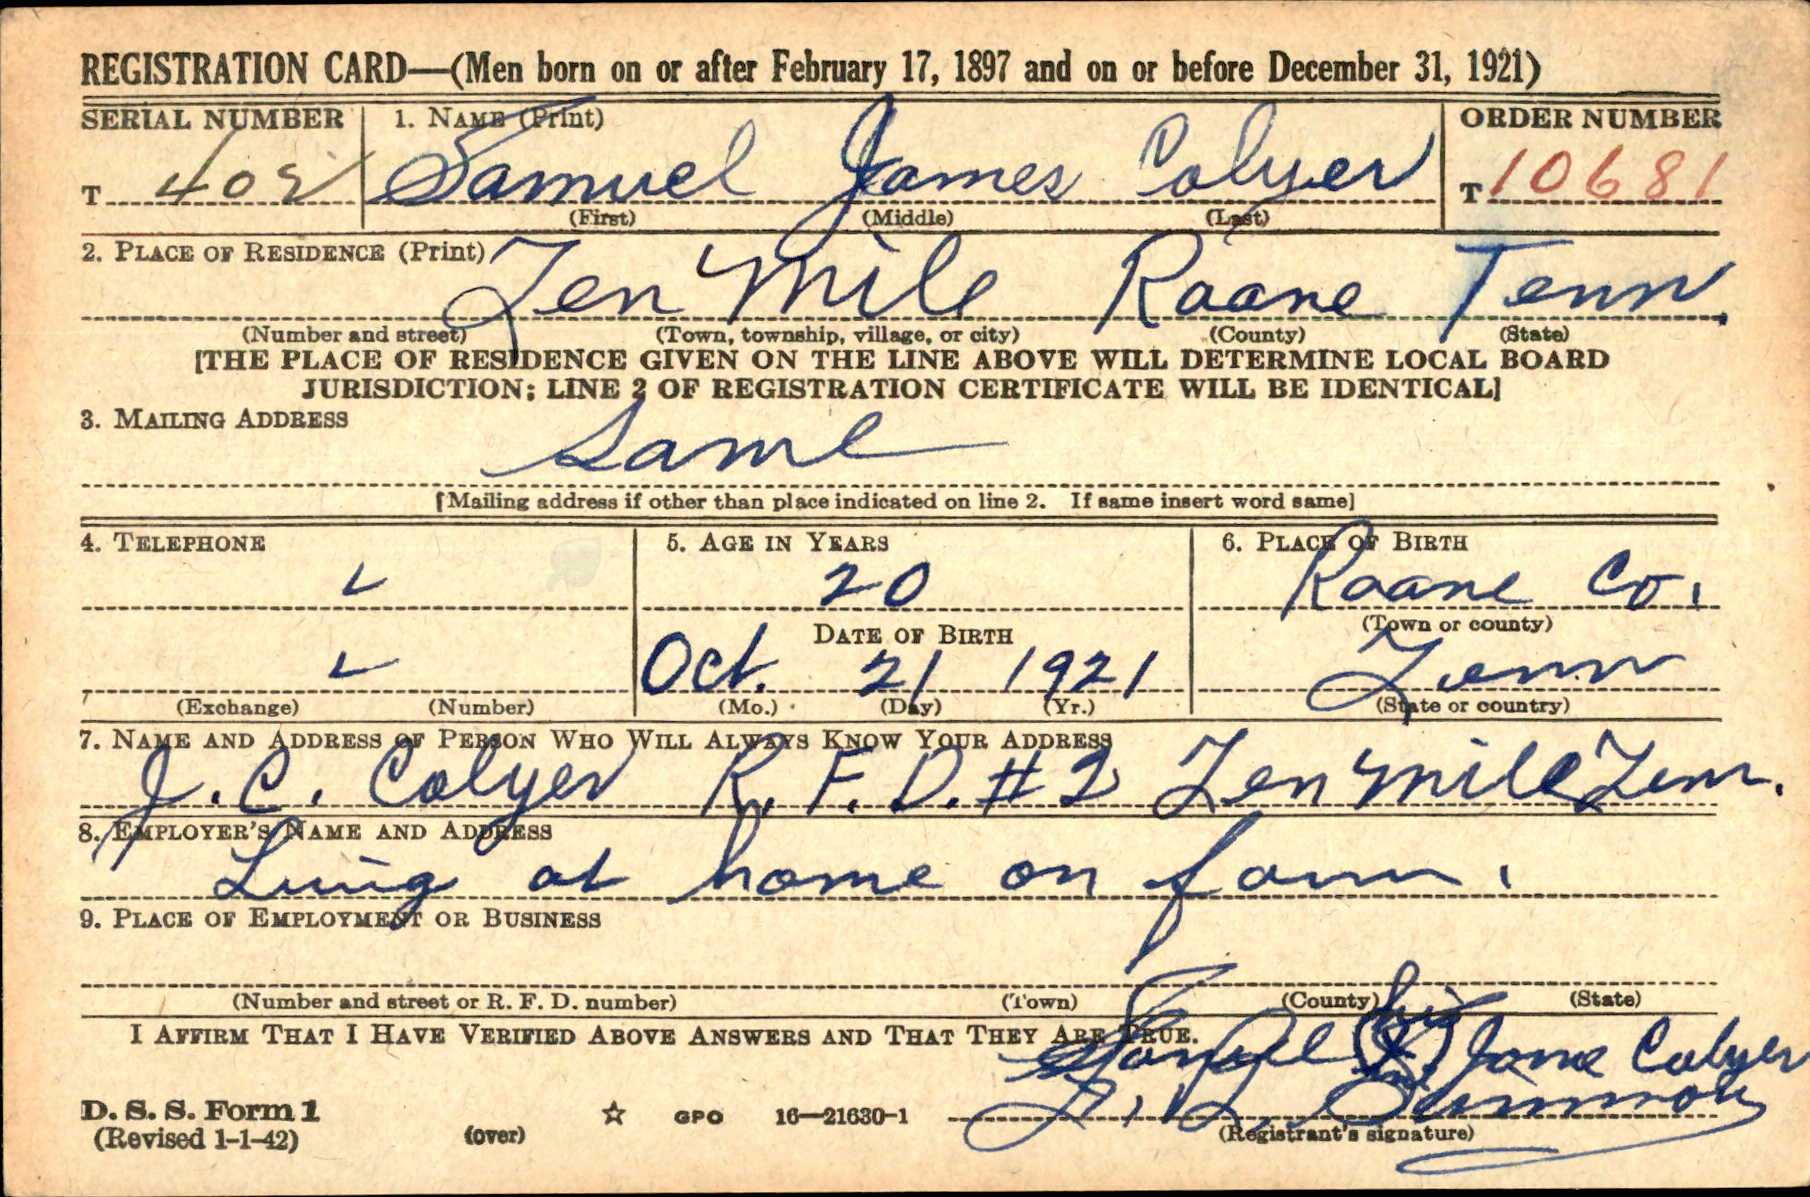 REGISTRATION CARD—(Men born on or after February 17, 1897 and on or before December 31, 1921)
SERIAL NUMBER 1. NAME (Print) ORDER NUMBER
T 402 Samuel James Colyer T 10681
(First) (Middle) (Last)
2. PLACE OF RESIDENCE (Print)
Ten Mile Roane Tenn
(Number and street) (Town, township, village, or city) (County) (State)
[THE PLACE OF RESIDENCE GIVEN ON THE LINE ABOVE WILL DETERMINE LOCAL BOARD
JURISDICTION; LINE 2 OF REGISTRATION CERTIFICATE WILL BE IDENTICAL]
3. MAILING ADDRESS
Same
[Mailing address if other than place indicated on line 2. If same insert word same]
4. TELEPHONE 5. AGE IN YEARS 6. PLACE OF BIRTH
20 Roane Co.
DATE OF BIRTH (Town or county)
Oct. 21 1921 Tenn
(Exchange) (Number) (Mo.) (Day) (Yr.) (State or country)
7. NAME AND ADDRESS OF PERSON WHO WILL ALWAYS KNOW YOUR ADDRESS
J. C. Colyer R. F. D. #2 Ten Mile Tenn.
8. EMPLOYER'S NAME AND ADDRESS
Living at home on farm.
9. PLACE OF EMPLOYMENT OR BUSINESS
(Number and street or R. F. D. number) (Town) (County) (State)
I AFFIRM THAT I HAVE VERIFIED ABOVE ANSWERS AND THAT THEY ARE TRUE.
his
Samuel (X) Jame Colyer
D. S. S. Form 1
(Revised 1-1-42) (over) ☆ GPO 16—21630-1 (Registrant's signature)